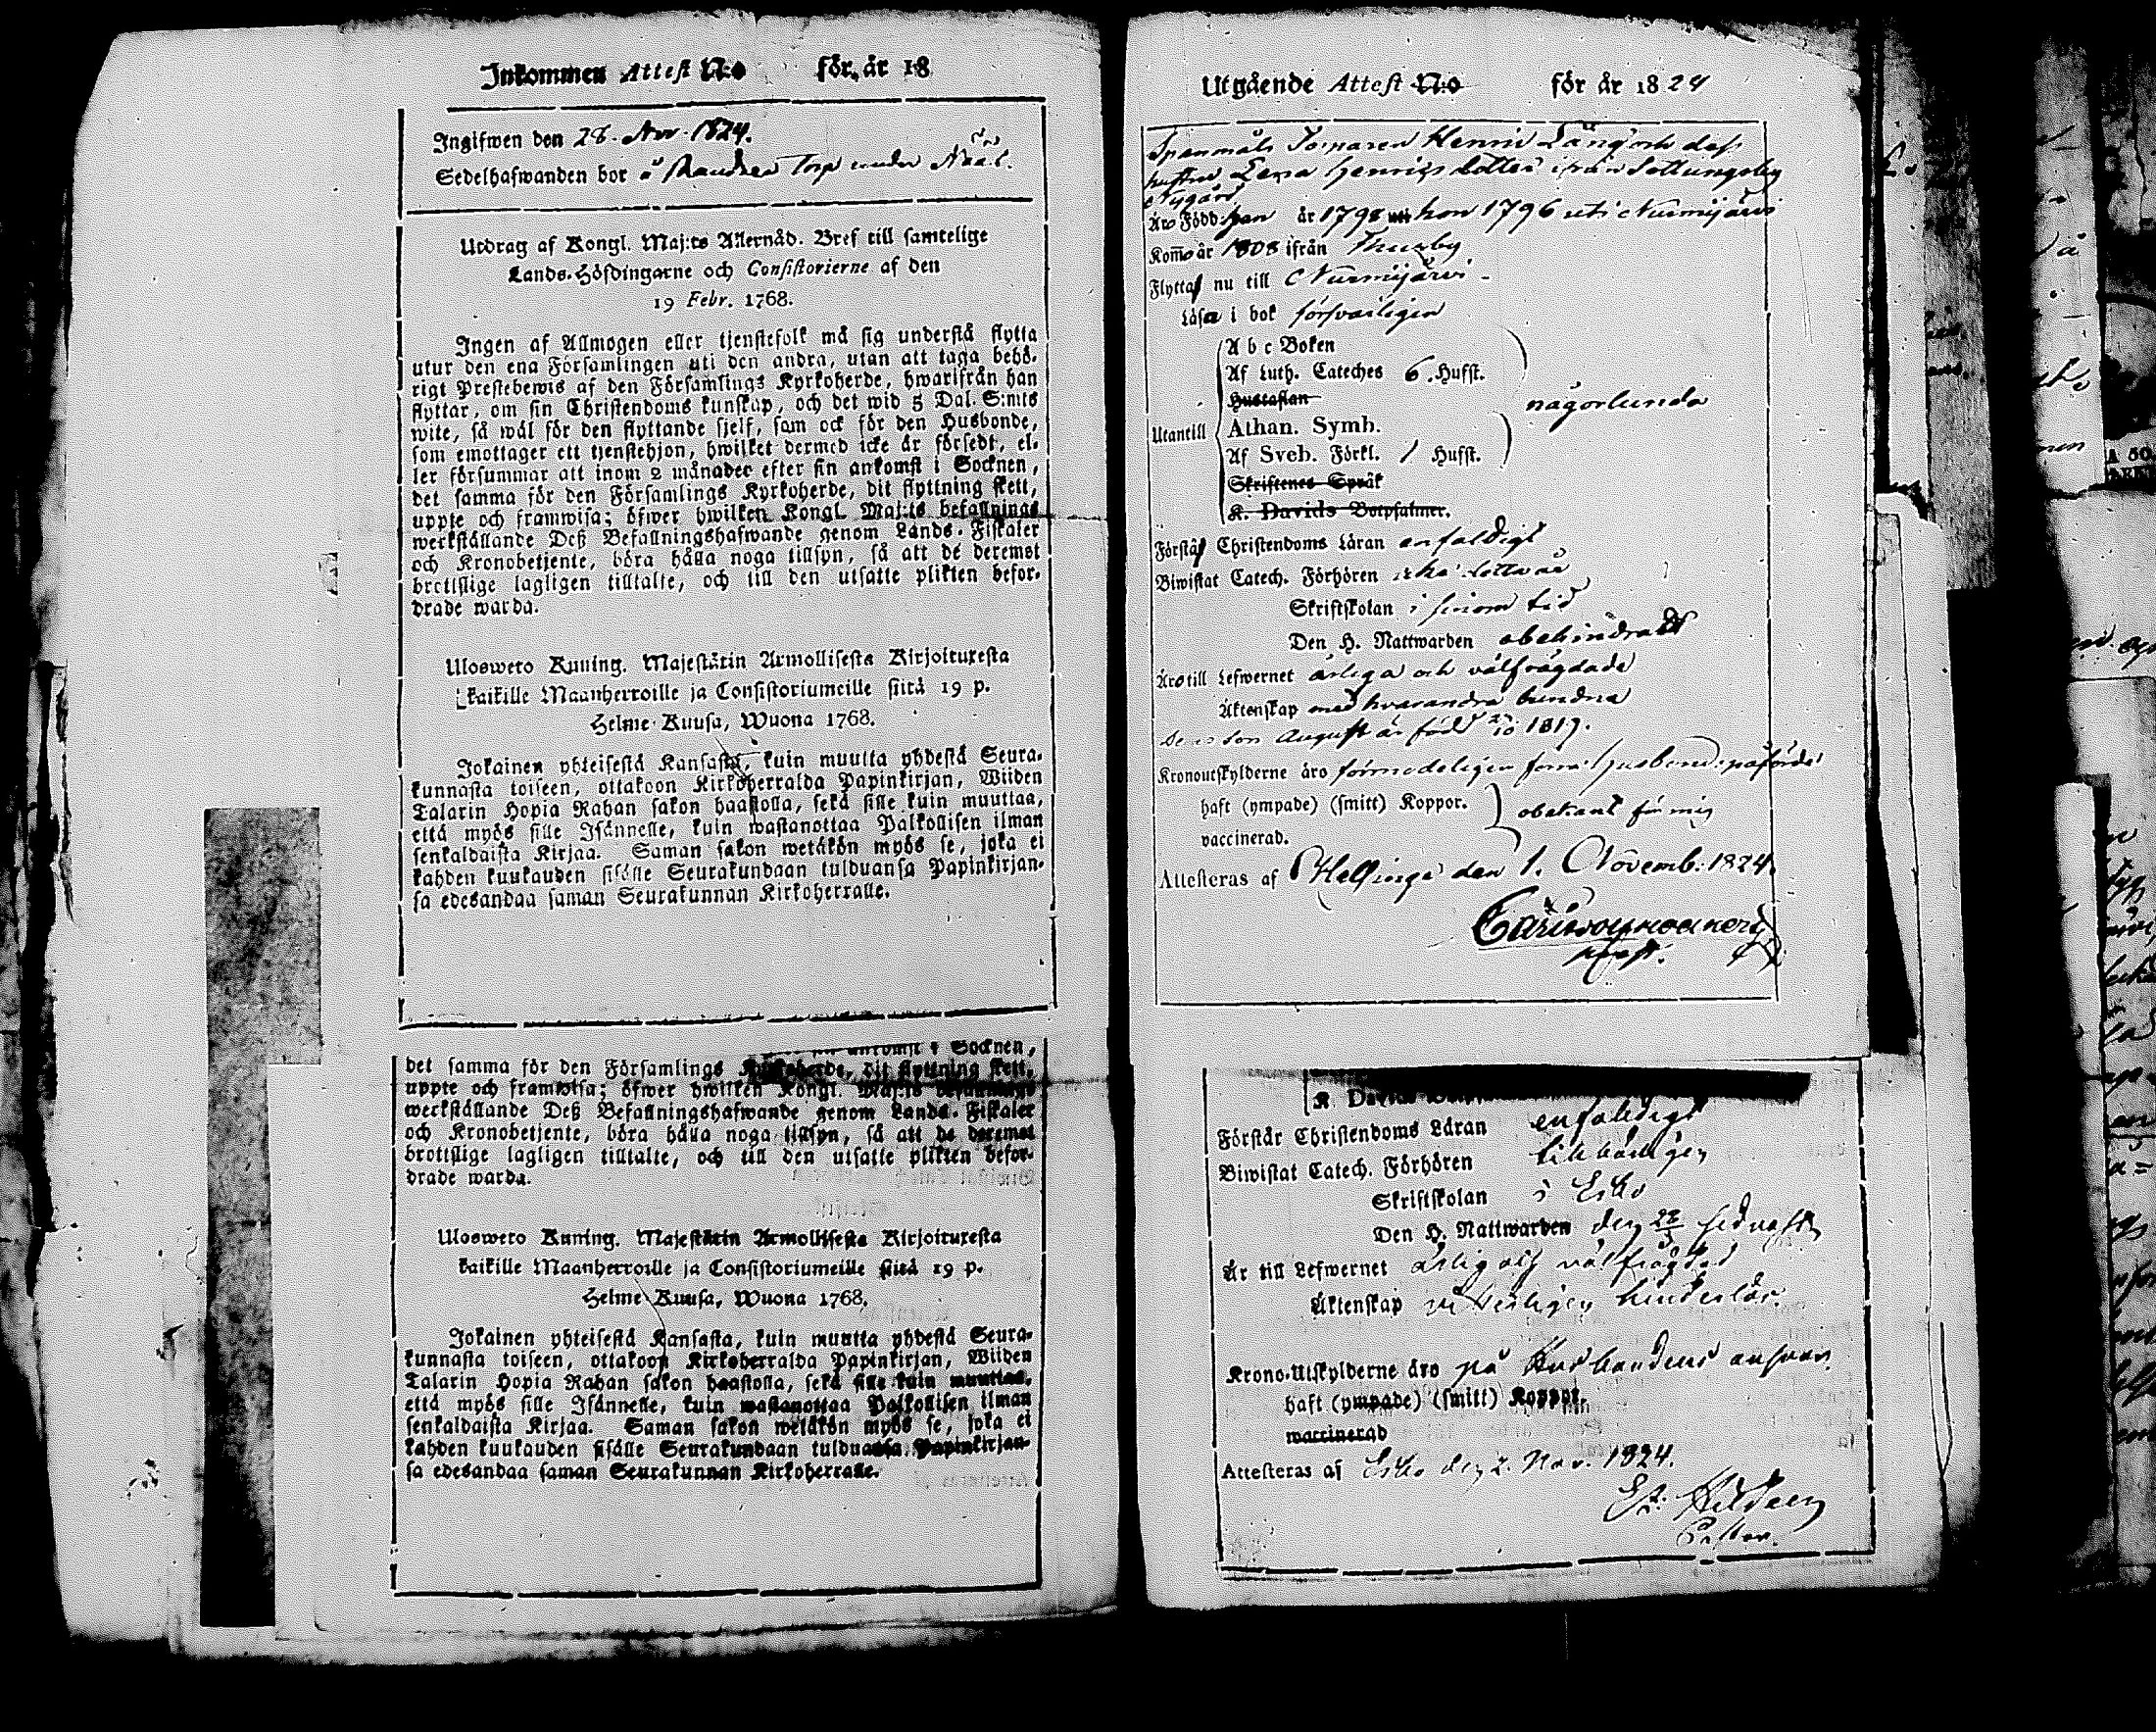 Inkommen Attest No för år 18
Ingifwen den 28. Nov. 1824.
Sedelhafwanden bor å Torp under
Utdrag af Kongl. Maj:ts Allernåd. Bref till samtelige
Lands-Höfdingarne och Consistorierne af den
19 Febr. 1768.
Ingen af Allmogen eller tjenstefolk må sig understå flytta
utur den ena Församlingen uti den andra, utan att taga behö-
rigt Prestebewis af den Församlings Kyrkoherde, hwarifrån han
flyttar, om sin Christendoms kunskap, och det wid 5 Dal. S:mts
wite, så wäl för den flyttande sjelf, som ock för den Husbonde,
som emottager ett tjenstehjon, hwilket dermed icke är försedt, el-
ler försummar att inom 2 månader efter sin ankomst i Socknen,
det samma för den Församlings Kyrkoherde, dit flyttning skett,
uppte och framwisa; öfwer hwilken Kongl. Maj:ts befallnings
werkställande Deß Befallningshafwande genom Lands-Fiskaler
och Kronobetjente, böra hålla noga tillsyn, så att de deremot
brottslige lagligen tilltalte, och till den utsatte plikten befor-
drade warda.
Ulosweto Kuning. Majestätin Armollisesta Kirjoituxesta
kaikille Maanherroille ja Consistoriumeille siitä 19 p.
Helme-Kuusa, Wuona 1768.
Jokainen yhteisestä Kansasta, kuin muutta yhdestä Seura-
kunnasta toiseen, ottakoon Kirkoherralda Papinkirjan, Wiiden
Talarin Hopia Rahan sakon haastolla, sekä sille kuin muuttaa,
että myös sille Isännelle, kuin wastanottaa Palkollisen ilman
senkaldaista Kirjaa. Saman sakon wetäkön myös se, joka ei
kahden kuukauden sisälle Seurakundaan tulduansa Papinkirjan-
sa edesandaa saman Seurakunnan Kirkoherralle.
det samma för den Församlings Kyrkoherde, dit flyttning skett,
uppte och framwisa; öfwer hwilken Kongl. Maj:ts befallnings
werkställande Deß Befallningshafwande genom Lands-Fiskaler
och Kronobetjente, böra hålla noga tillsyn, så att de deremot
brottslige lagligen tilltalte, och till den utsatte plikten befor-
drade warda.
Ulosweto Kuning. Majestätin Armollisesta Kirjoituxesta
kaikille Maanherroille ja Consistoriumeille siitä 19 p.
Helme-Kuusa, Wuona 1768.
Jokainen yhteisestä Kansasta, kuin muutta yhdestä Seura-
kunnasta toiseen, ottakoon Kirkoherralda Papinkirjan, Wiiden
Talarin Hopia Rahan sakon haastolla, sekä sille kuin muuttaa,
että myös sille Isännelle, kuin wastanottaa Palkollisen ilman
senkaldaista Kirjaa. Saman sakon wetäkön myös se, joka ei
kahden kuukauden sisälle Seurakundaan tulduansa Papinkirjan-
sa edesandaa saman Seurakunnan Kirkoherralle.
Utgående Attest No för år 1824
Spanmåls Torparen Henric Läng och dess
hustru Lena Henrics dotter ifrån Sottungsby
Nygård
Äro Född han år 1798 uti hon 1796 uti Nurmijärvi
Kom år 1808 ifrån Thusby
Flyttas nu till Nurmijärvi
Läsa i bok försvarligen
Utantill
A b c Boken
Af Luth. Cateches 6. Hufst.
Hustaflan
Athan. Symb.
Af Sveb. Förkl. 1 Hufst.
någorlunda
Skriftenes Språk
K. Davids Botpsalmer.
Förstå Christendoms Läran enfaldigt
Biwistat Catech. Förhören
Skriftskolan i sinom tid
Den H. Nattwarden obehindradt
Äro till Lefwernet ärliga och välfrägdade
Äktenskap med hvarandra bundna
son August är född 1817.
Kronoutskylderne äro förmodeligen påförde
haft (ympade) (smitt) Koppor.
vaccinerad.
obekant för mig
Attesteras af Helsinge den 1. Novemb. 1824.
K. Davids
Förstår Christendoms Läran enfaldigt
Biwistat Catech. Förhören
Skriftskolan i Esbo
Den H. Nattwarden den sednast
Är till Lefwernet ärlig och välfrägdad
Äktenskap hinderlös.
Krono-Utskylderne äro på husbondens ansvar.
haft (ympade) (smitt) Koppor.
vaccinerad
Attesteras af Esbo den 2. Nov. 1824.
Pastor.